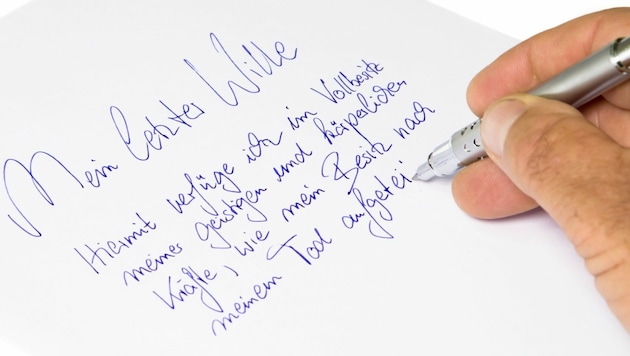 Mein letzter Wille
Hiermit verfüge ich im Vollbesitz
meiner geistigen und körperlichen
Kräfte, wie mein Besitz nach
meinem Tod aufgetei